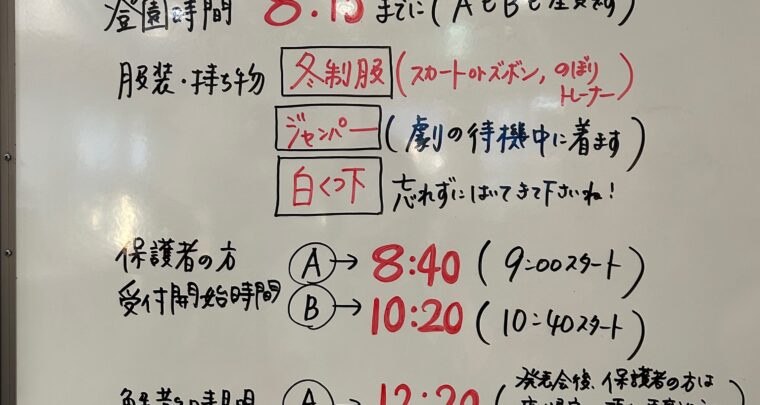 登園時間 8:15 までに(AもBも全員です)
服装・持ち物 冬制服(スカートorズボン,のぼり
トレーナー)
ジャンパー(劇の待機中に着ます)
白くつ下 忘れずにはいてきて下さいね!
保護者の方 Ⓐ→8:40(9:00スタート)
受付開始時間 Ⓑ→10:20(10:40スタート)
時間 Ⓐ→12:20(発表会後、保護者の方は